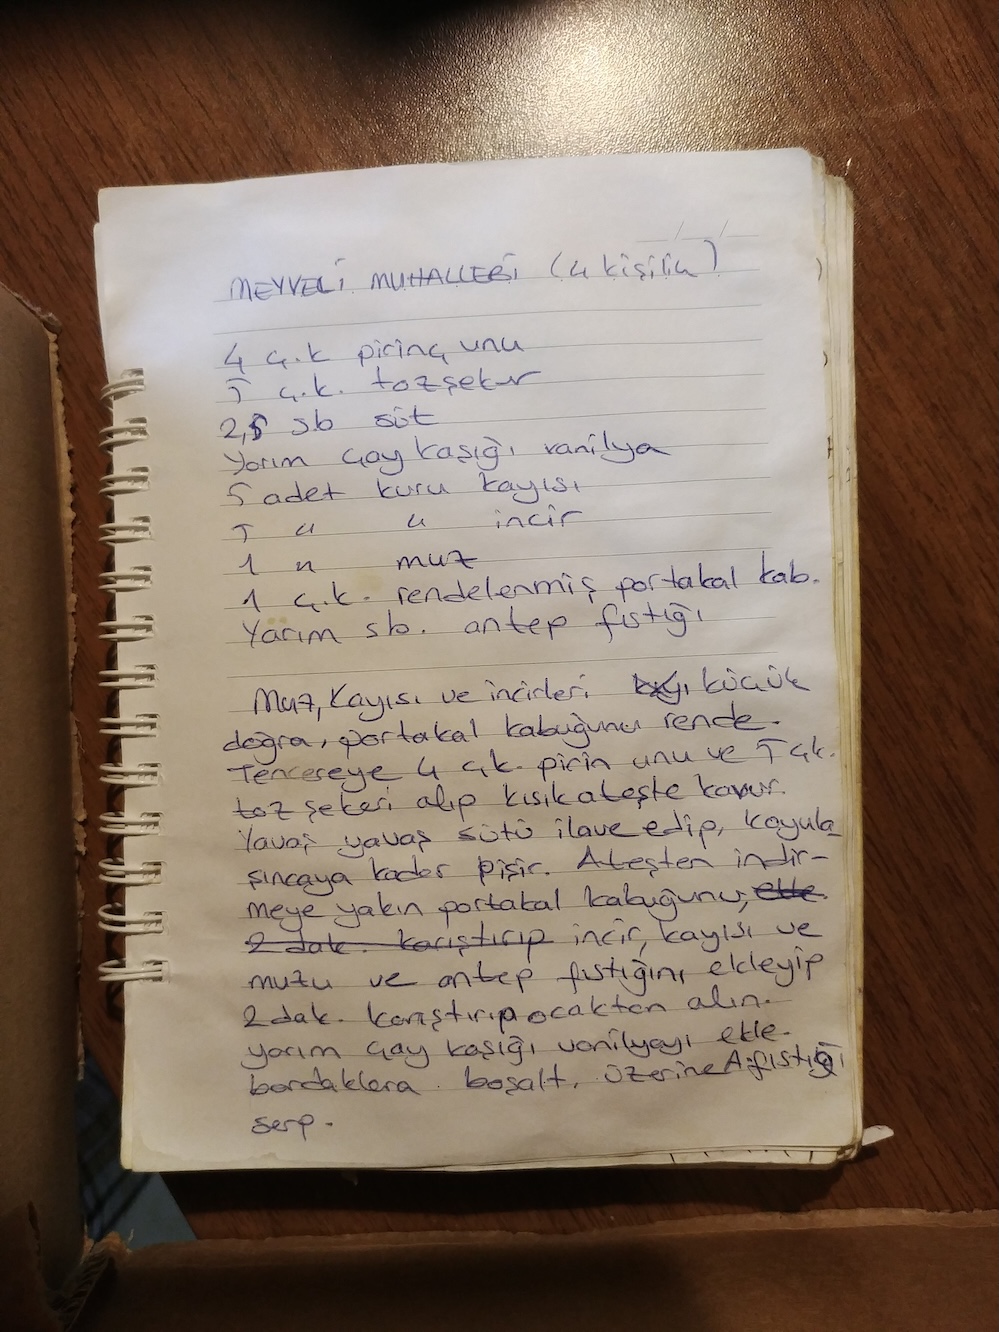 MEYVELİ MUHALLEBİ (4 kişilik)
4 ç.k pirinç unu
5 ç.k. tozşeker
2,5 sb süt
Yarım çay kaşığı vanilya
5 adet kuru kayısı
5 " " incir
1 " muz
1 ç.k. rendelenmiş portakal kab.
Yarım sb. antep fıstığı
Muz, kayısı ve incirleri küçük
doğra, portakal kabuğunu rende.
Tencereye 4 çk. pirin unu ve 5 çk.
toz şekeri alıp kısık ateşte kavur.
Yavaş yavaş sütü ilave edip, koyula
şıncaya kadar pişir. Ateşten indir-
meye yakın portakal kabuğunu, ekle.
2 dak. karıştırıp incir, kayısı ve
muzu ve antep fıstığını ekleyip
2 dak. karıştırıp ocaktan alın.
yarım çay kaşığı vanilyayı ekle.
bardaklara boşalt, üzerine A.fıstığı
serp.